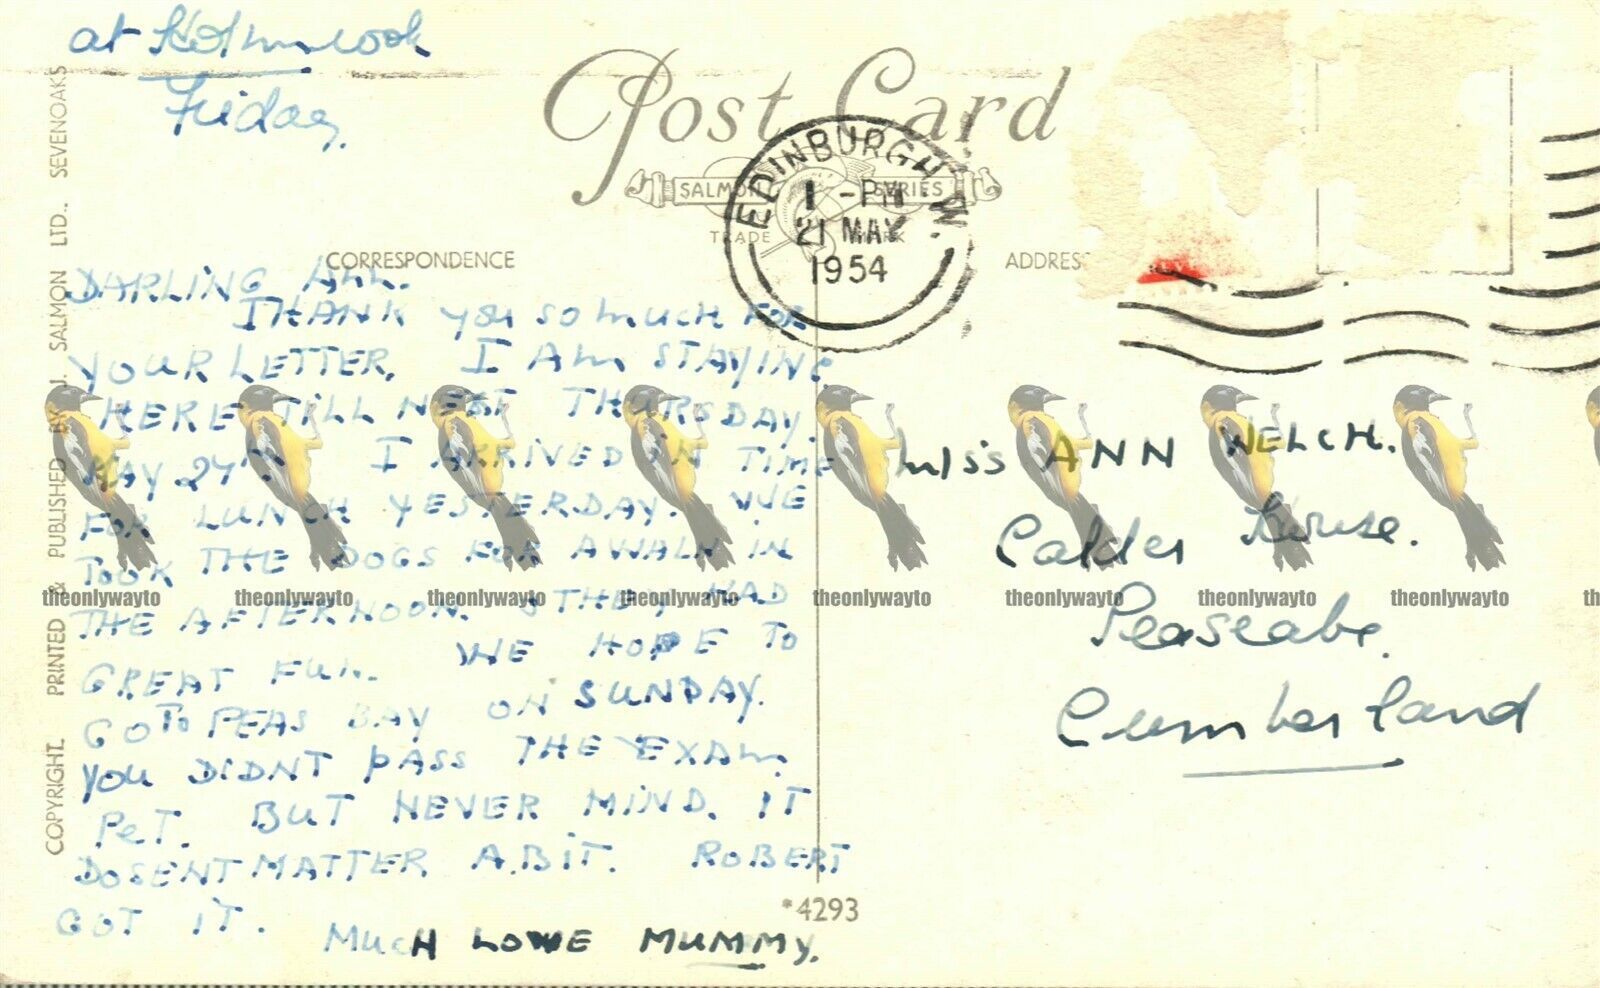 at Holmrook
Friday.
Post Card
SALMON SERIES
TRADE MARK
EDINBURGH W.
1 - PM
21 MAY
1954
CORRESPONDENCE
ADDRES
DARLING ANN.
THANK you so much FOR
YOUR LETTER. I AM STAYING
HERE TILL NEXT THURSDAY.
MAY 27TH. I ARRIVED IN TIME
FOR LUNCH YESTERDAY. WE
TOOK THE DOGS FOR A WALK IN
THE AFTERNOON. & THEY HAD
GREAT FUN. WE HOPE TO
GO TO PEAS BAY ON SUNDAY.
YOU DIDNT PASS THE EXAM.
PET. BUT NEVER MIND. IT
DOSENT MATTER A.BIT. ROBERT
GOT IT.
MUCH LOWE MUMMY.
Miss ANN WELCH.
Calder House.
Seascale.
Cumberland
*4293
COPYRIGHT. PRINTED & PUBLISHED BY J. SALMON LTD., SEVENOAKS
theonlywayto theonlywayto theonlywayto theonlywayto theonlywayto theonlywayto theonlywayto theonlywayto th